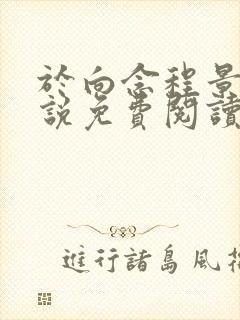 於向念程景
說免費閱讀
進行諸島風